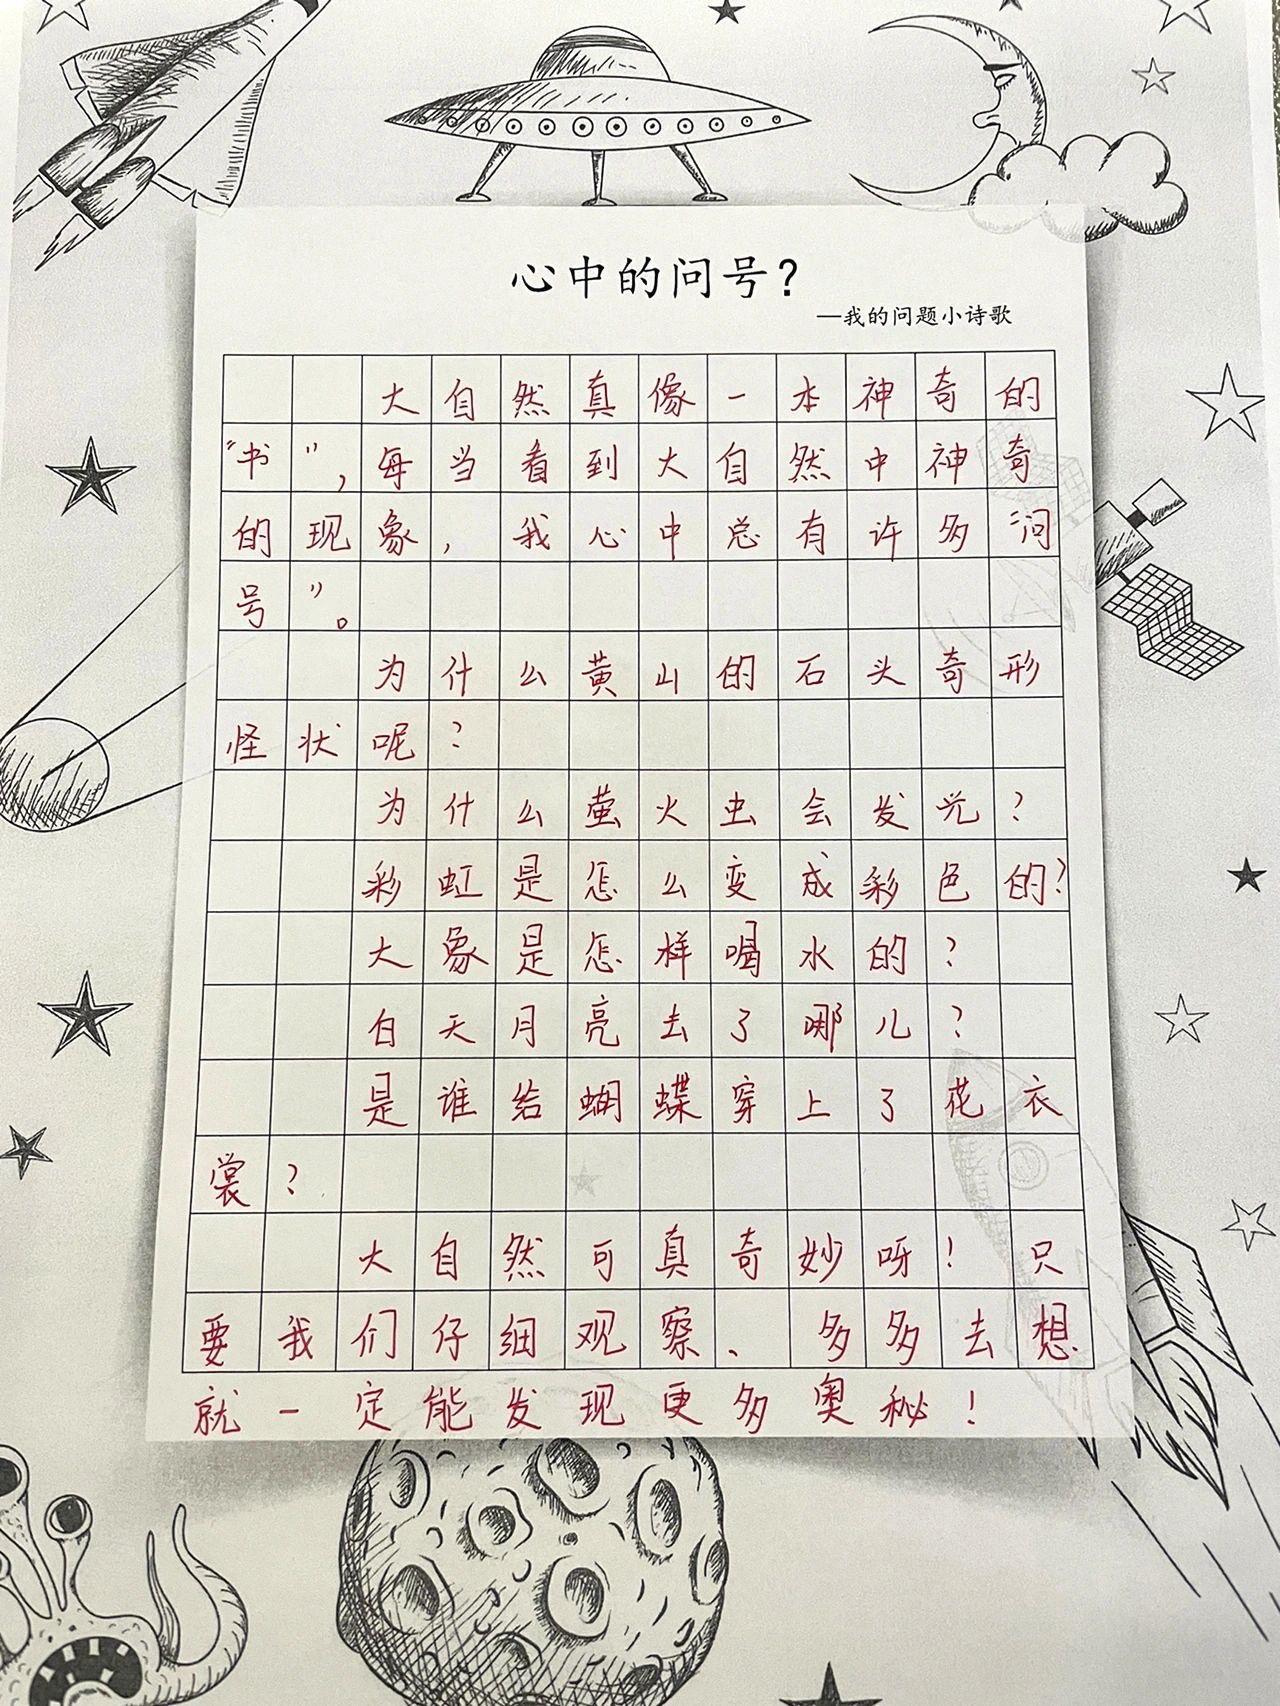 心中的问号？
—我的问题小诗歌
大自然真像一本神奇的
“书”，每当看到大自然中神奇
的现象，我心中总有许多“问
号”。
为什么黄山的石头奇形
怪状呢？
为什么萤火虫会发光？
彩虹是怎么变成彩色的？
大象是怎样喝水的？
白天月亮去了哪儿？
是谁给蝴蝶穿上了花衣
裳？
大自然可真奇妙呀！只
要我们仔细观察、多多去想
就一定能发现更多奥秘！